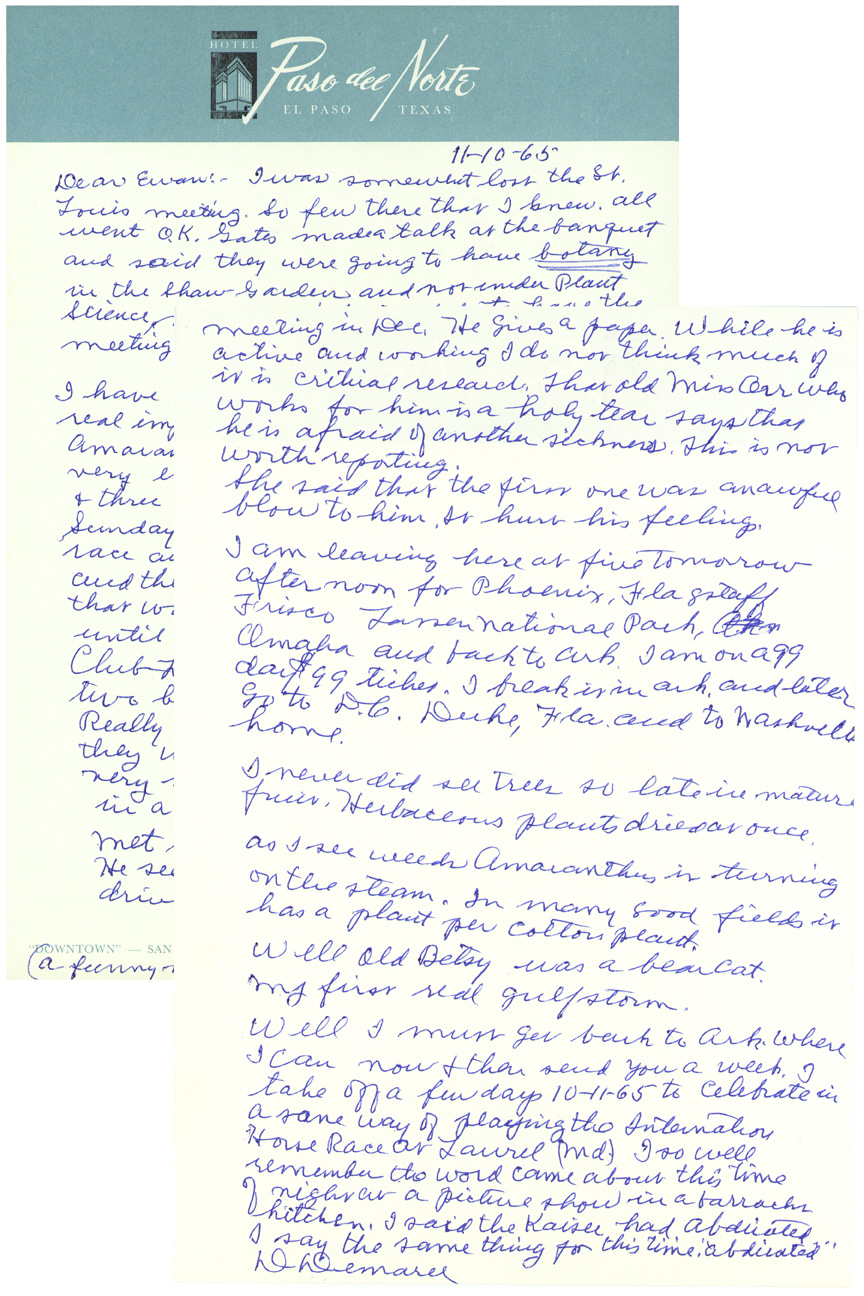 HOTEL
Paso del Norte
EL PASO TEXAS
11-10-65
Dear Ewan:- I was somewht lost the St.
Louis meeting. So few there that I knew. all
went O.K. Gates made a talk at the banquet
and said they were going to have botany
in the Shaw Garden and not under Plant
Science,
meeting
I have
real im
Amaran
very e
& three
Sunday
race a
and the
that wo
until
Club
two b
Really
they w
very
in a
met
He see
driv
"DOWNTOWN" — SAN
(a funny
meeting in Dec. He gives a paper. While he is
active and working I do not think much of
it is critical research. That old Miss Orr who
works for him is a holy tear says that
he is afraid of another sickness. This is not
worth reporting.
She said that the first one was an awful
blow to him. It hurt his feeling.
I am leaving here at five tomorrow
afternoon for Phoenix, Flagstaff
Frisco Lassen National Park,
Omaha and back to Ark. I am on a 99
day $99 ticket. I break it in Ark. and later
go to D.C. Duke, Fla. and to Nashville
home.
I never did see trees so late in mature
fruit. Herbaceous plants dried at once.
as I see weeds Amaranthus is turning
on the steam. In many good fields it
has a plant per cotton plant.
Well Old Betsy was a bearcat.
My first real gulf storm.
Well I must get back to Ark. where
I can now & then send you a weed. I
take off a few days 10-11-65 to celebrate in
a sane way of playing the Internation
Horse Race at Laurel (Md) I so well
remember the word came about this time
of night at a picture show in a barracks
kitchen. I said the Kaiser had Abdicated
I say the same thing for this time "abdicated"
D Demaree